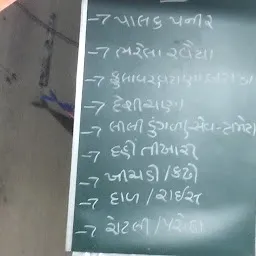 → પાલક પનીર
→ ભરેલા રવૈયા
→ દેશી ચણા
→ લીલી ડુંગળી / સેવ-ટામેટા
→ દહીં તીખારી
→ ખીચડી / કઢી
→ દાળ / રાઈસ
→ રોટલી / પરોઠા